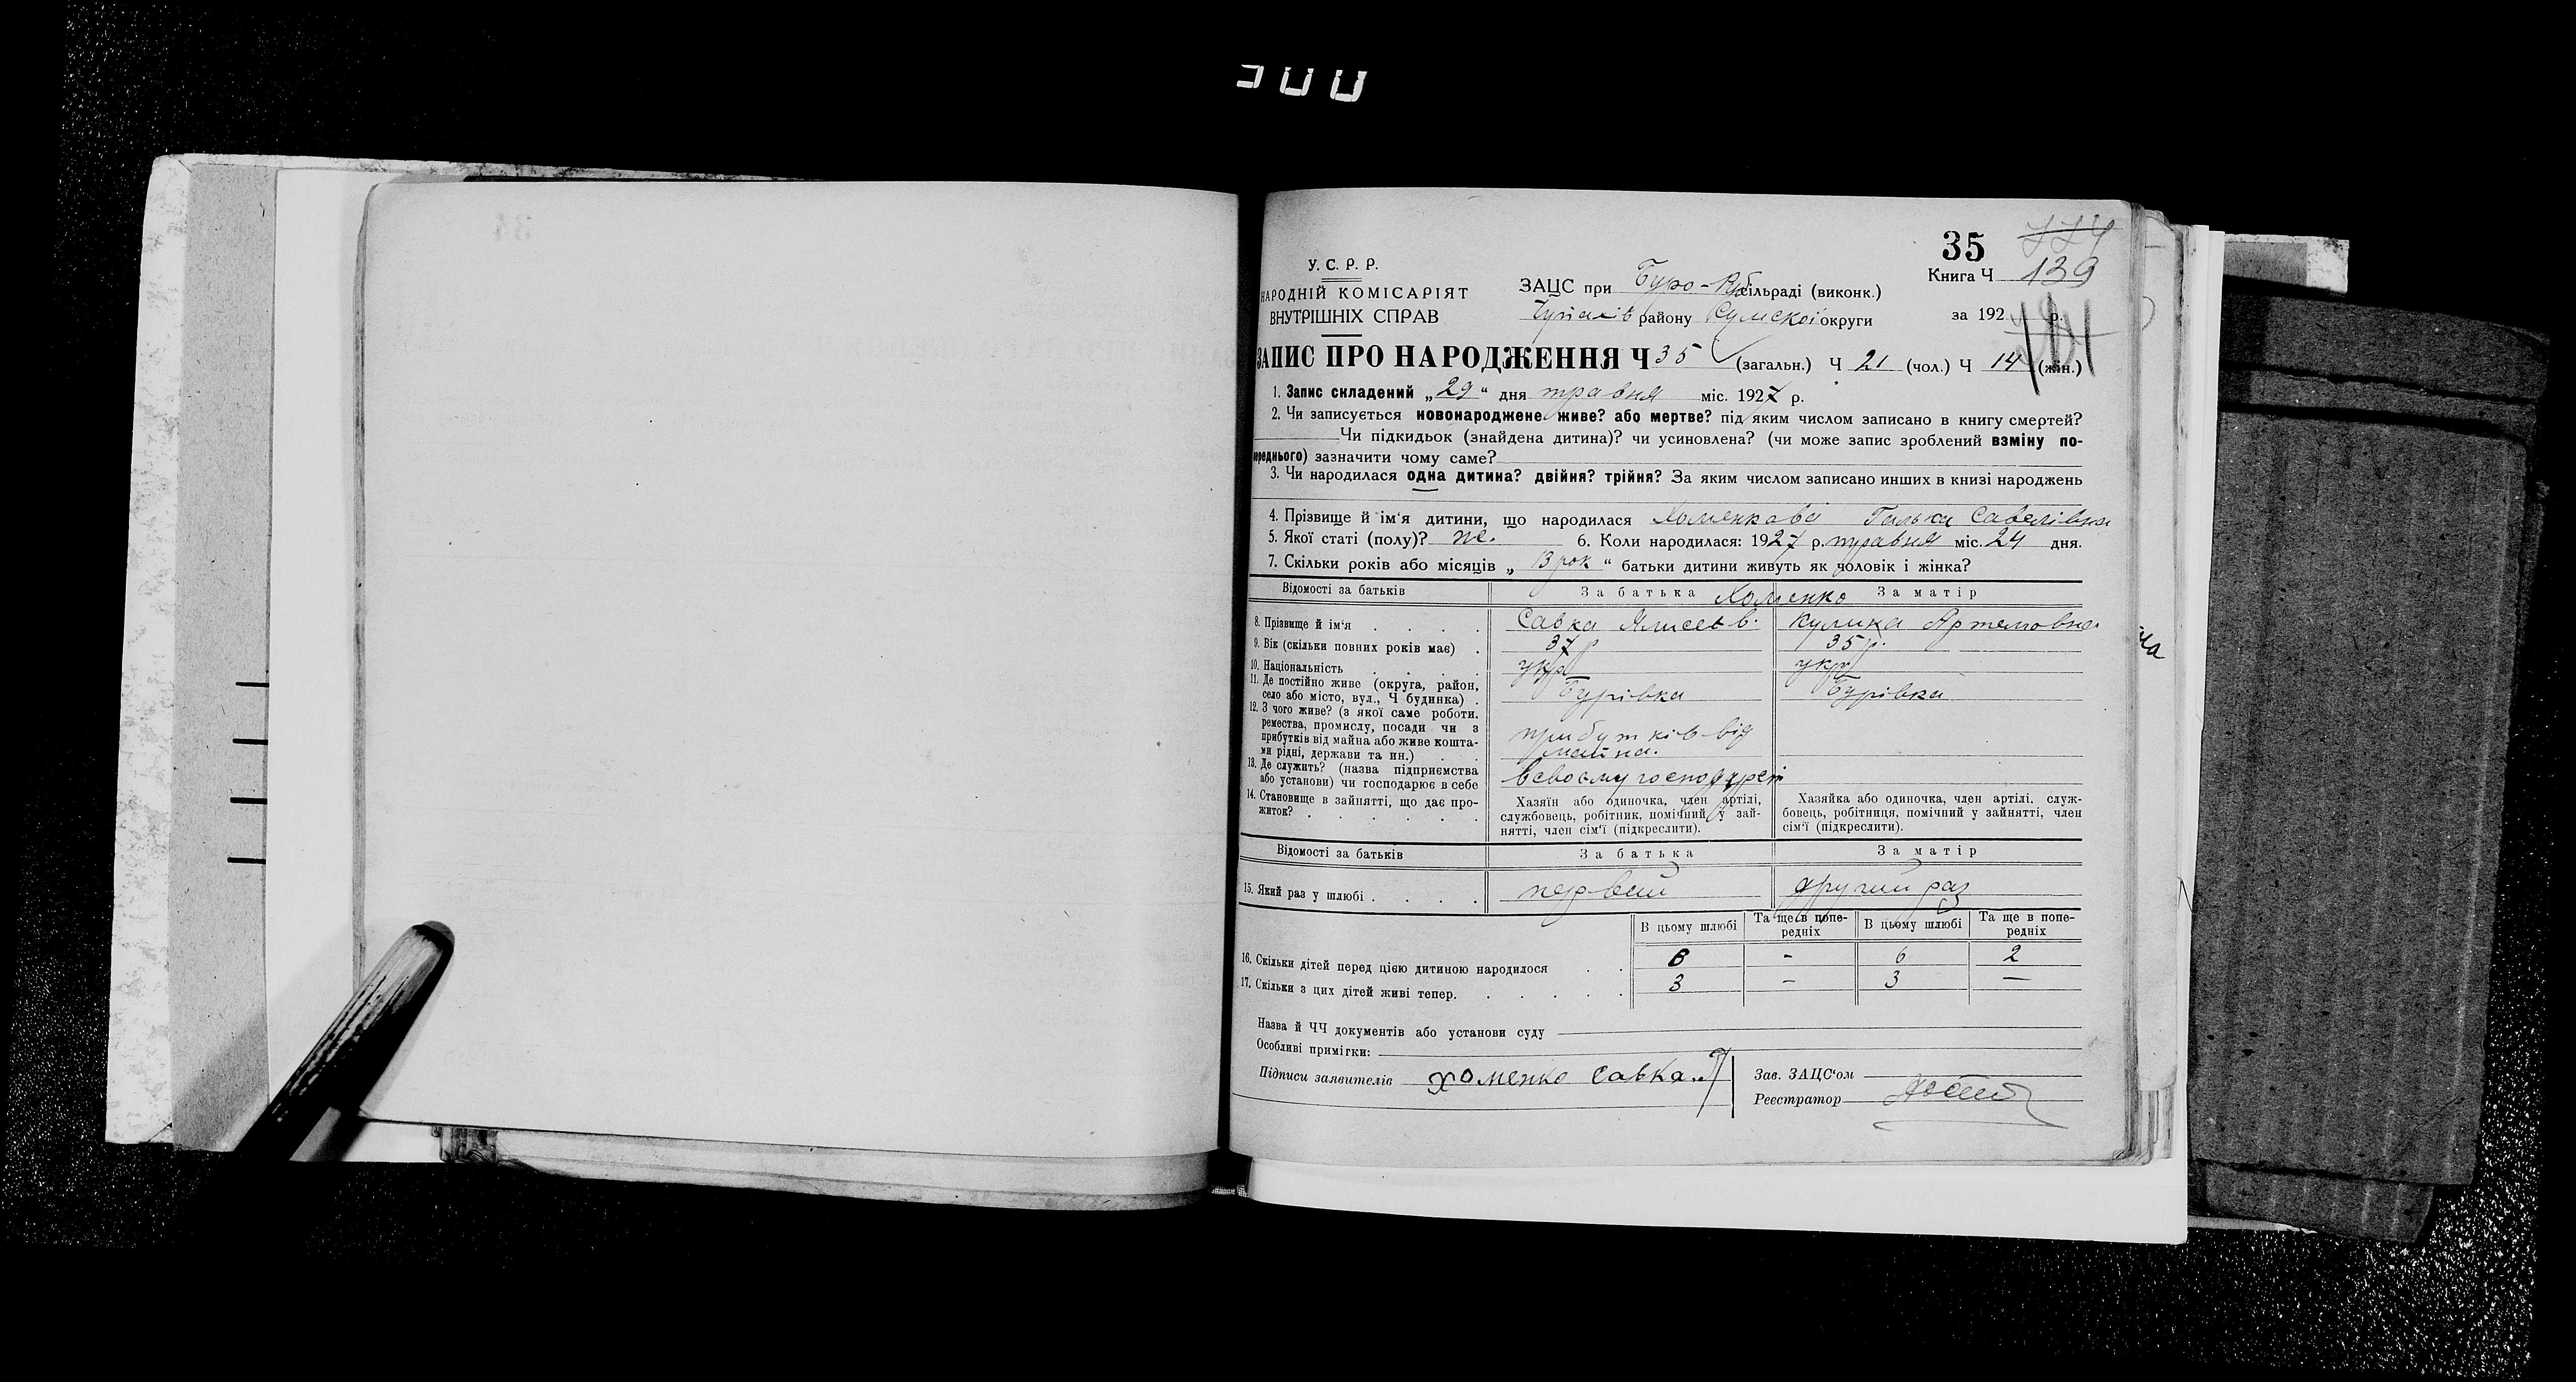 35
139
У. С. Р. Р.
НАРОДНІЙ КОМІСАРІЯТ
ВНУТРІШНІХ СПРАВ
ЗАЦС при Буро- сільраді (виконк.)
району Сумскої округи
Книга Ч
за 192 р.
ЗАПИС ПРО НАРОДЖЕННЯ Ч 35 (загальн.) Ч 21 (чол.) Ч 14 (жін.)
1. Запис складений „29“ дня травня міс. 1927 р.
2. Чи записується новонароджене живе? або мертве? під яким числом записано в книгу смертей?
Чи підкидьок (знайдена дитина)? чи усиновлена? (чи може запис зроблений взміну по-
переднього) зазначити чому саме?
3. Чи народилася одна дитина? двійня? трійня? За яким числом записано инших в книзі народжень
4. Прізвище й ім‘я дитини, що народилася Хоменкова Галька Савелівна
5. Якої статі (полу)? же. 6. Коли народилася: 1927 р. травня міс. 24 дня.
7. Скільки років або місяців „ 13 рок “ батьки дитини живуть як чоловік і жінка?
Відомості за батьків За батька Хоменко За матір
8. Прізвище й ім‘я . . . . Савка Ялисеев. Кулина Артемовна
9. Вік (скільки повних років має) . 37 р 35 р.
10. Національність . . . . укр укр
11. Де постійно живе (округа, район,
село або місто, вул., Ч будинка) . Бурівка Бурівка
12. З чого живе? (з якої саме роботи,
ремества, промислу, посади чи з
прибутків від майна або живе кошта-
ми рідні, держави та ин.) . .
прибутків від
майна.
13. Де служить? (назва підприємства
або установи) чи господарює в себе
всвоєму господарст
14. Становище в зайнятті, що дає про-
житок? . . . . . .
Хазяїн або одиночка, член артілі,
службовець, робітник, помічний у зай-
нятті, член сім‘ї (підкреслити).
Хазяйка або одиночка, член артілі, служ-
бовець, робітниця, помічний у зайнятті, член
сім‘ї (підкреслити).
Відомості за батьків За батька За матір
15. Який раз у шлюбі . . . . первий другий раз
В цьому шлюбі Та ще в попе-
редніх В цьому шлюбі Та ще в попе-
редніх
16. Скільки дітей перед цією дитиною народилося . . 6 - 6 2
17. Скільки з цих дітей живі тепер. . . . . . 3 - 3 —
Назва й ЧЧ документів або установи суду
Особливі примітки:
Підписи заявителів Хоменко Савка
Зав. ЗАЦС‘ом
Реєстратор